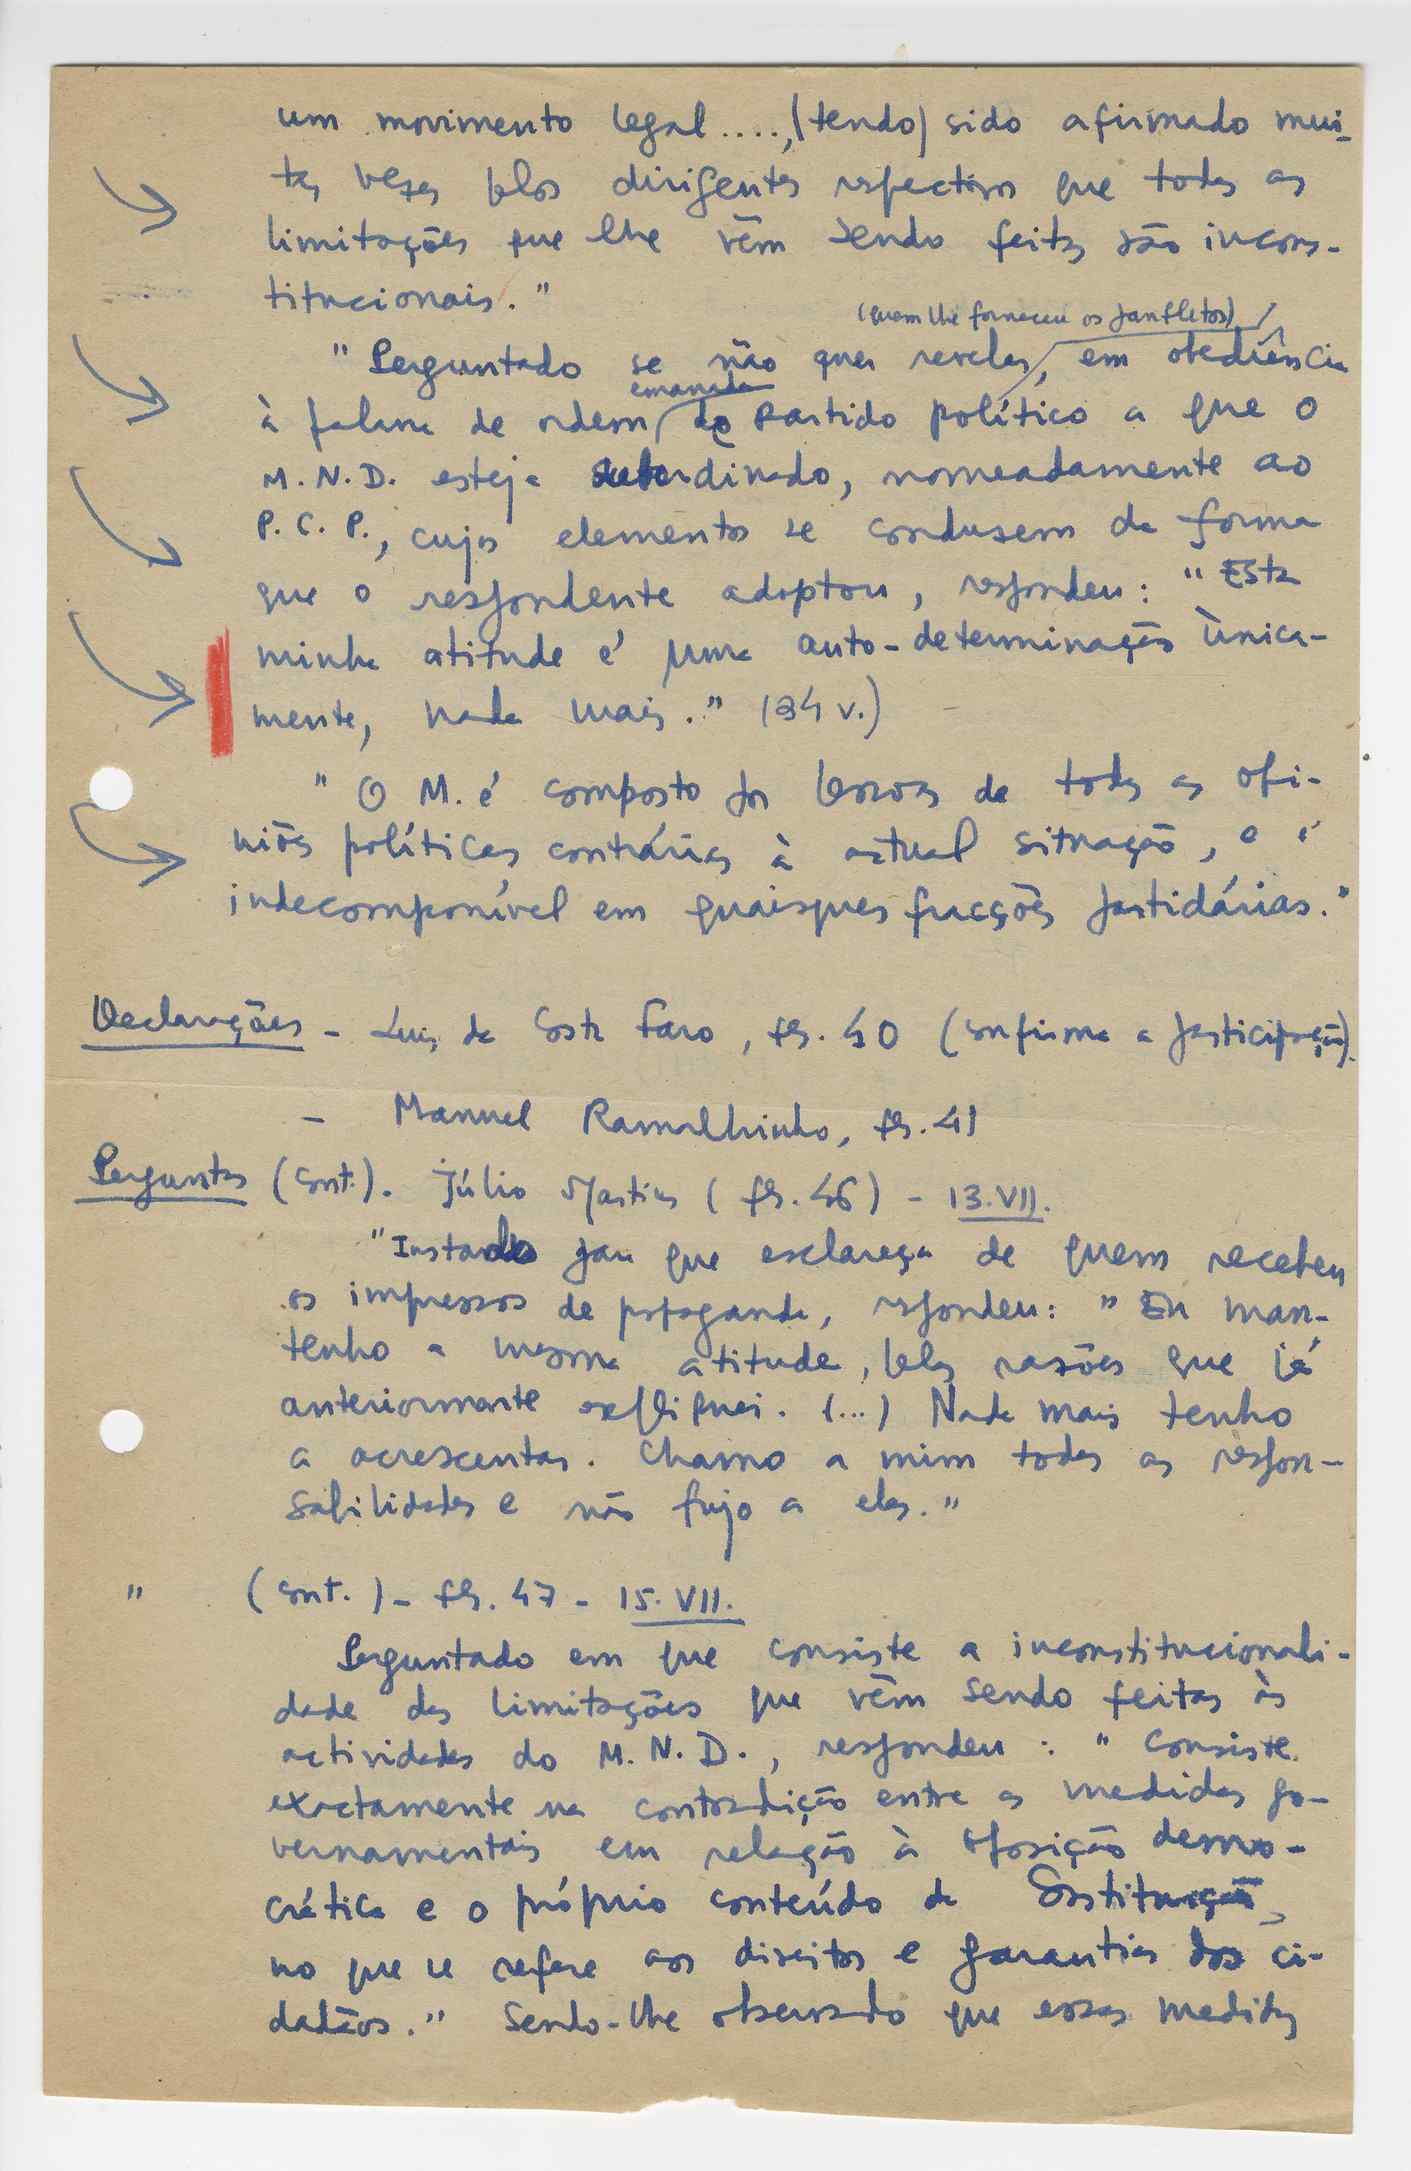 um movimento legal...., (tendo) sido afirmado mui-
tas vezes pelos dirigentes respectivos que todas as
limitações que lhe vêm sendo feitas são incons-
titucionais."
(quem lhe forneceu os panfletos)
"Perguntado se não quer revelar, em obediência
emanada
à palavra de ordem do Partido político a que o
M.N.D. esteja subordinado, nomeadamente ao
P.C.P., cujos elementos se conduzem da forma
que o respondente adoptou, respondeu: "Esta
minha atitude é uma auto-determinação ùnica-
mente, nada mais." (34 v.)
"O M. é composto por pessoas de todas as opi-
niões políticas contrárias à actual situação, e é
indecomponível em quaisquer fracções partidárias."
Declarações - Luis da Costa Faro, fls. 40 (confirma a participação).
- Manuel Ramalhinho, fls. 41
Perguntas (cont.). Júlio Martins (fls. 46) - 13.VII.
"Instado para que esclareça de quem recebeu
os impressos de propaganda, respondeu: "Eu man-
tenho a mesma atitude, pelas razões que já
anteriormente expliquei. (...) Nada mais tenho
a acrescentar. Chamo a mim todas as respon-
sabilidades e não fujo a elas."
" (cont.) - fls. 47 - 15.VII.
Perguntado em que consiste a inconstitucionali-
dade das limitações que vêm sendo feitas às
actividades do M.N.D., respondeu: "Consiste
exactamente na contradição entre as medidas go-
vernamentais em relação à oposição democ-
crática e o próprio conteúdo da Constituição,
no que se refere aos direitos e garantias dos ci-
dadãos." Sendo-lhe observado que essas medidas